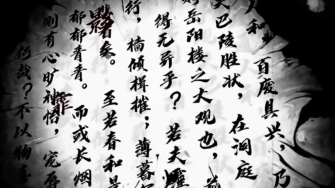 和，百废具兴，乃
夫巴陵胜状，在洞庭
则岳阳楼之大观也，前
得无异乎？若夫
行，樯倾楫摧；薄暮
矣。至若春和景
郁郁青青。而或长烟
则有心旷神怡，宠辱
何哉？不以物喜